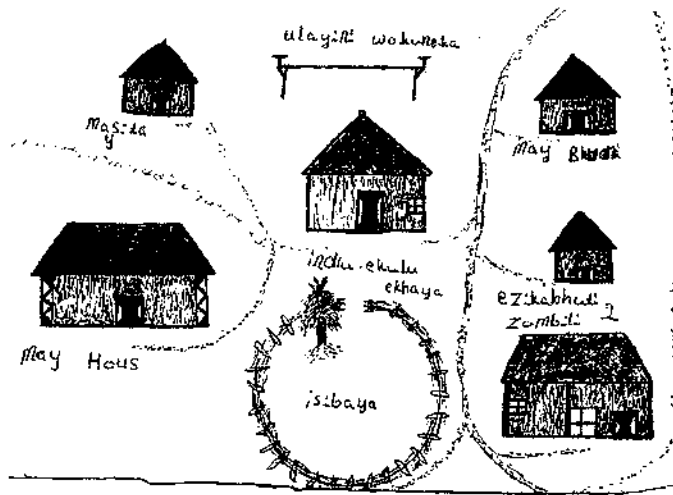 ulayini wokuneka
May
indlu-ekulu
ekhaya
ezikabhudi
zombili 2
May Hous
isibaya